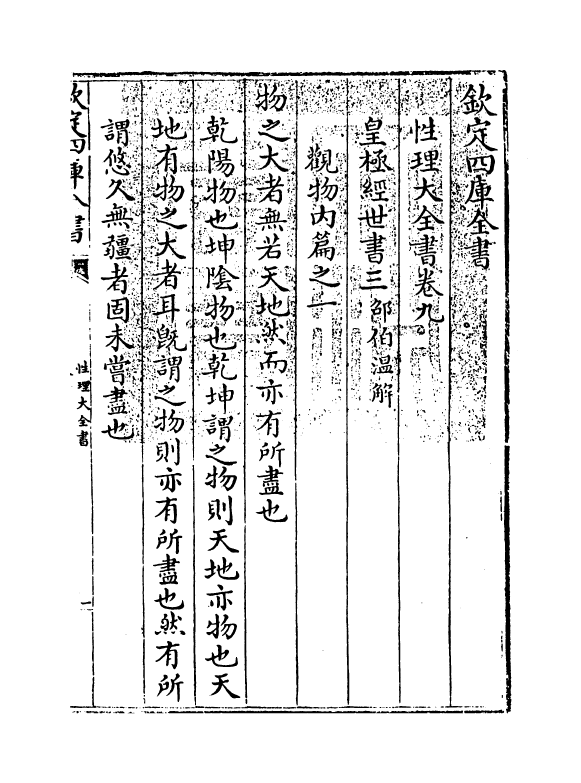 欽定四庫全書
性理大全書卷九
皇極經世書三 邵伯溫解
觀物内篇之一
物之大者無若天地然而亦有所盡也
乾陽物也坤陰物也乾坤謂之物則天地亦物也天
地有物之大者耳既謂之物則亦有所盡也然有所
謂悠久無疆者固未嘗盡也
欽定四庫全書
性理大全書
一